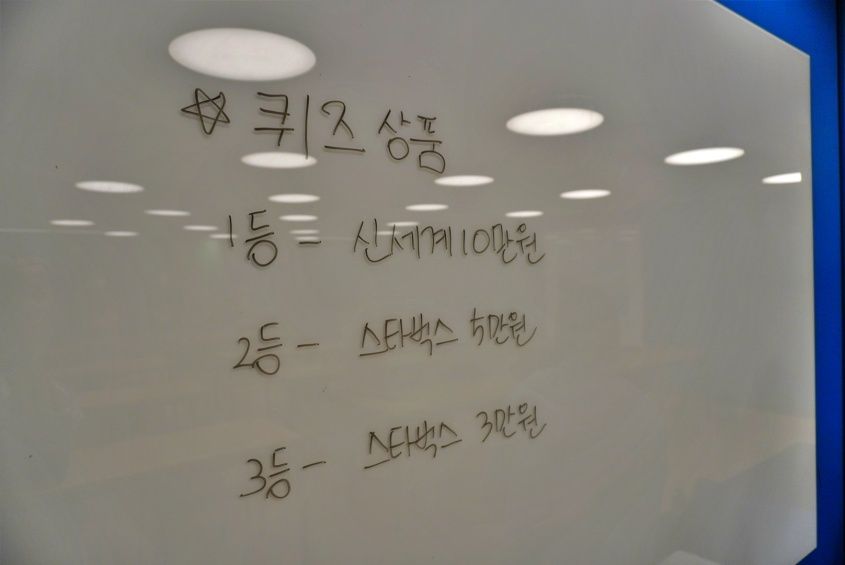 ☆ 퀴즈 상품
1등 - 신세계 10만원
2등 - 스타벅스 5만원
3등 - 스타벅스 3만원